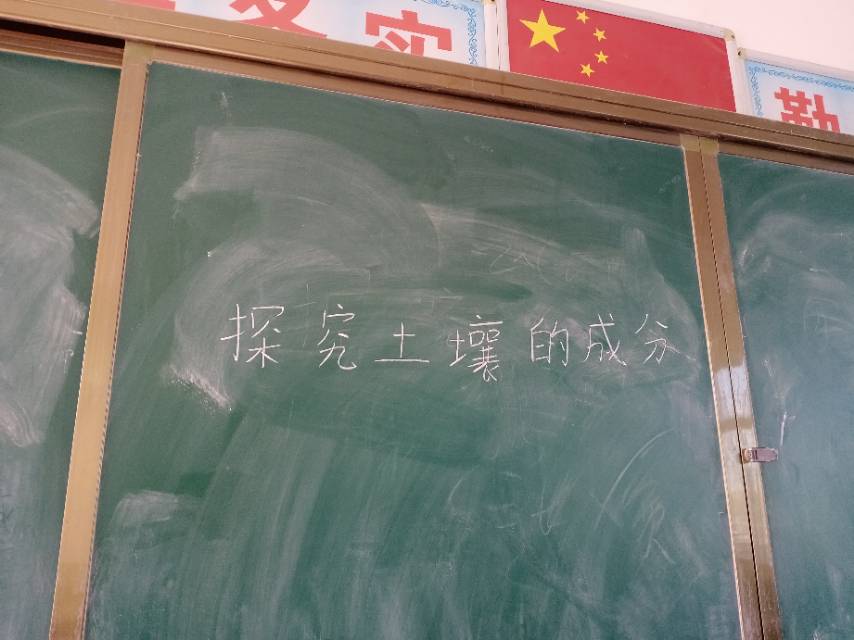 务 实
勤
探究土壤的成分